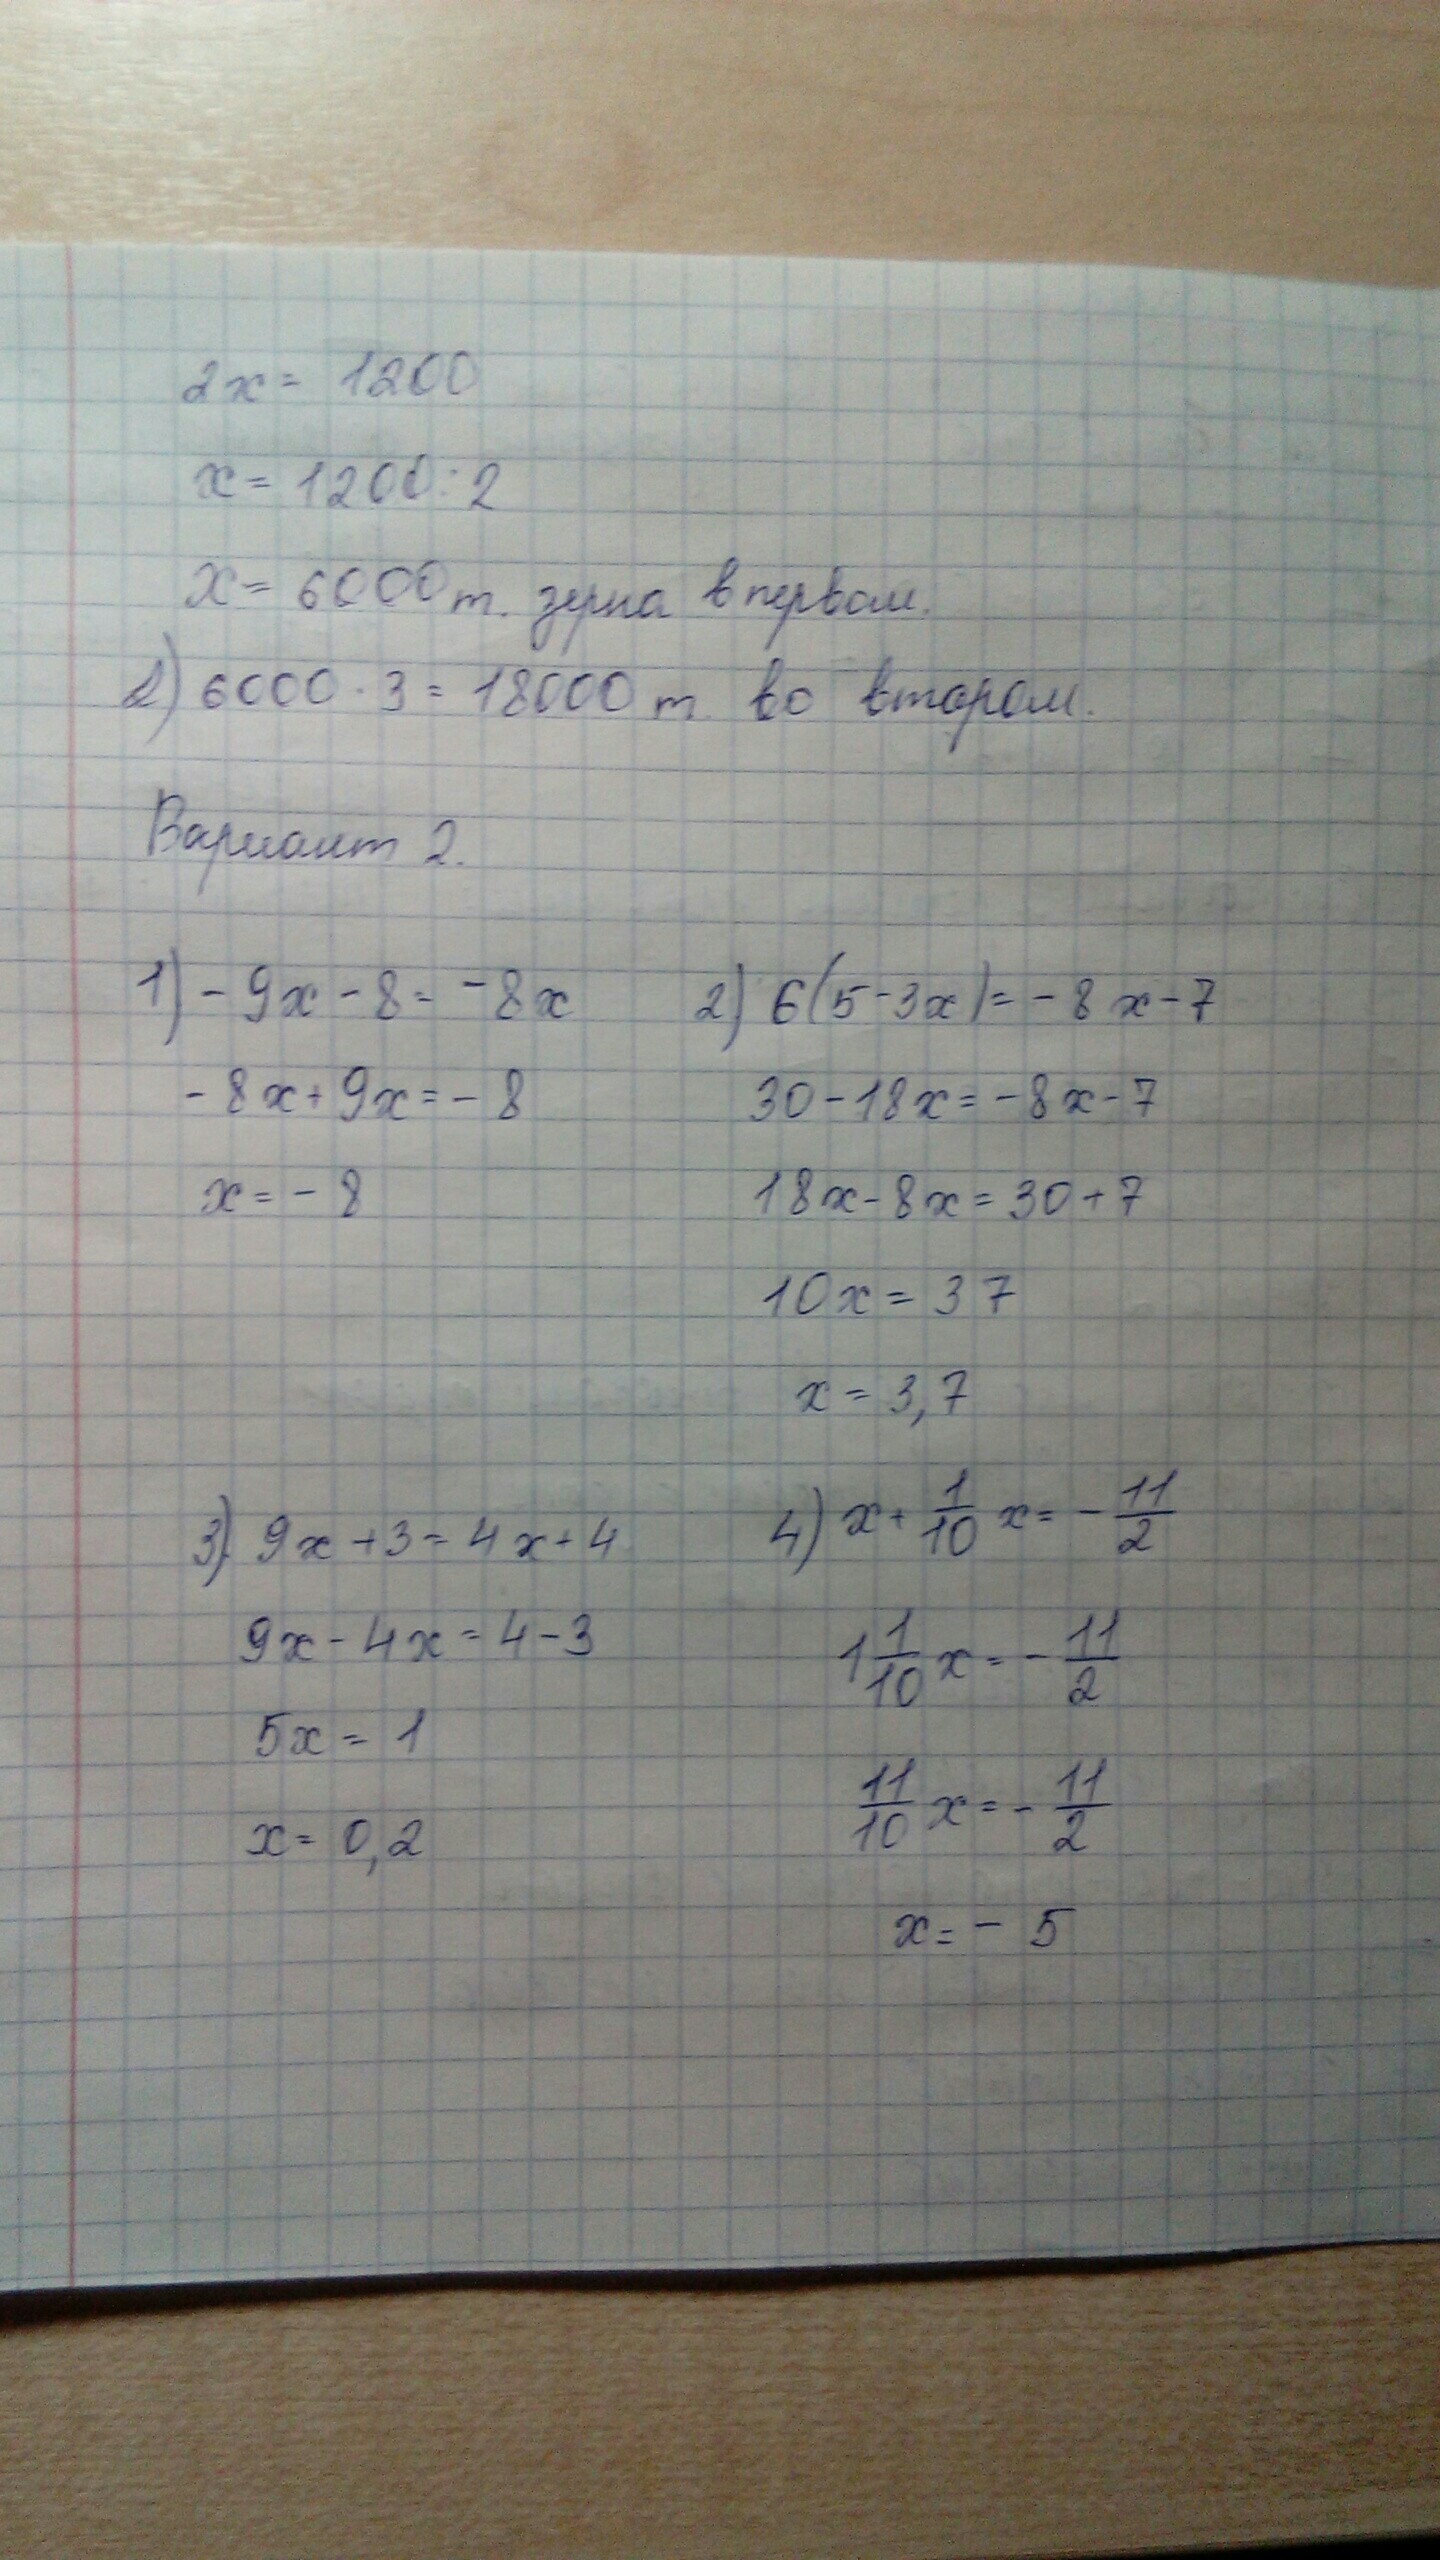 2x = 1200
x = 1200 : 2
x = 6000 т. зерна в первом.
2) 6000 · 3 = 18000 т. во втором.
Вариант 2.
1) - 9x - 8 = - 8x
- 8x + 9x = - 8
x = - 8
2) 6(5 - 3x) = - 8x - 7
30 - 18x = - 8x - 7
18x - 8x = 30 + 7
10x = 37
x = 3,7
3) 9x + 3 = 4x + 4
9x - 4x = 4 - 3
5x = 1
x = 0,2
4) x + 1/10 x = - 11/2
1 1/10 x = - 11/2
11/10 x = - 11/2
x = - 5